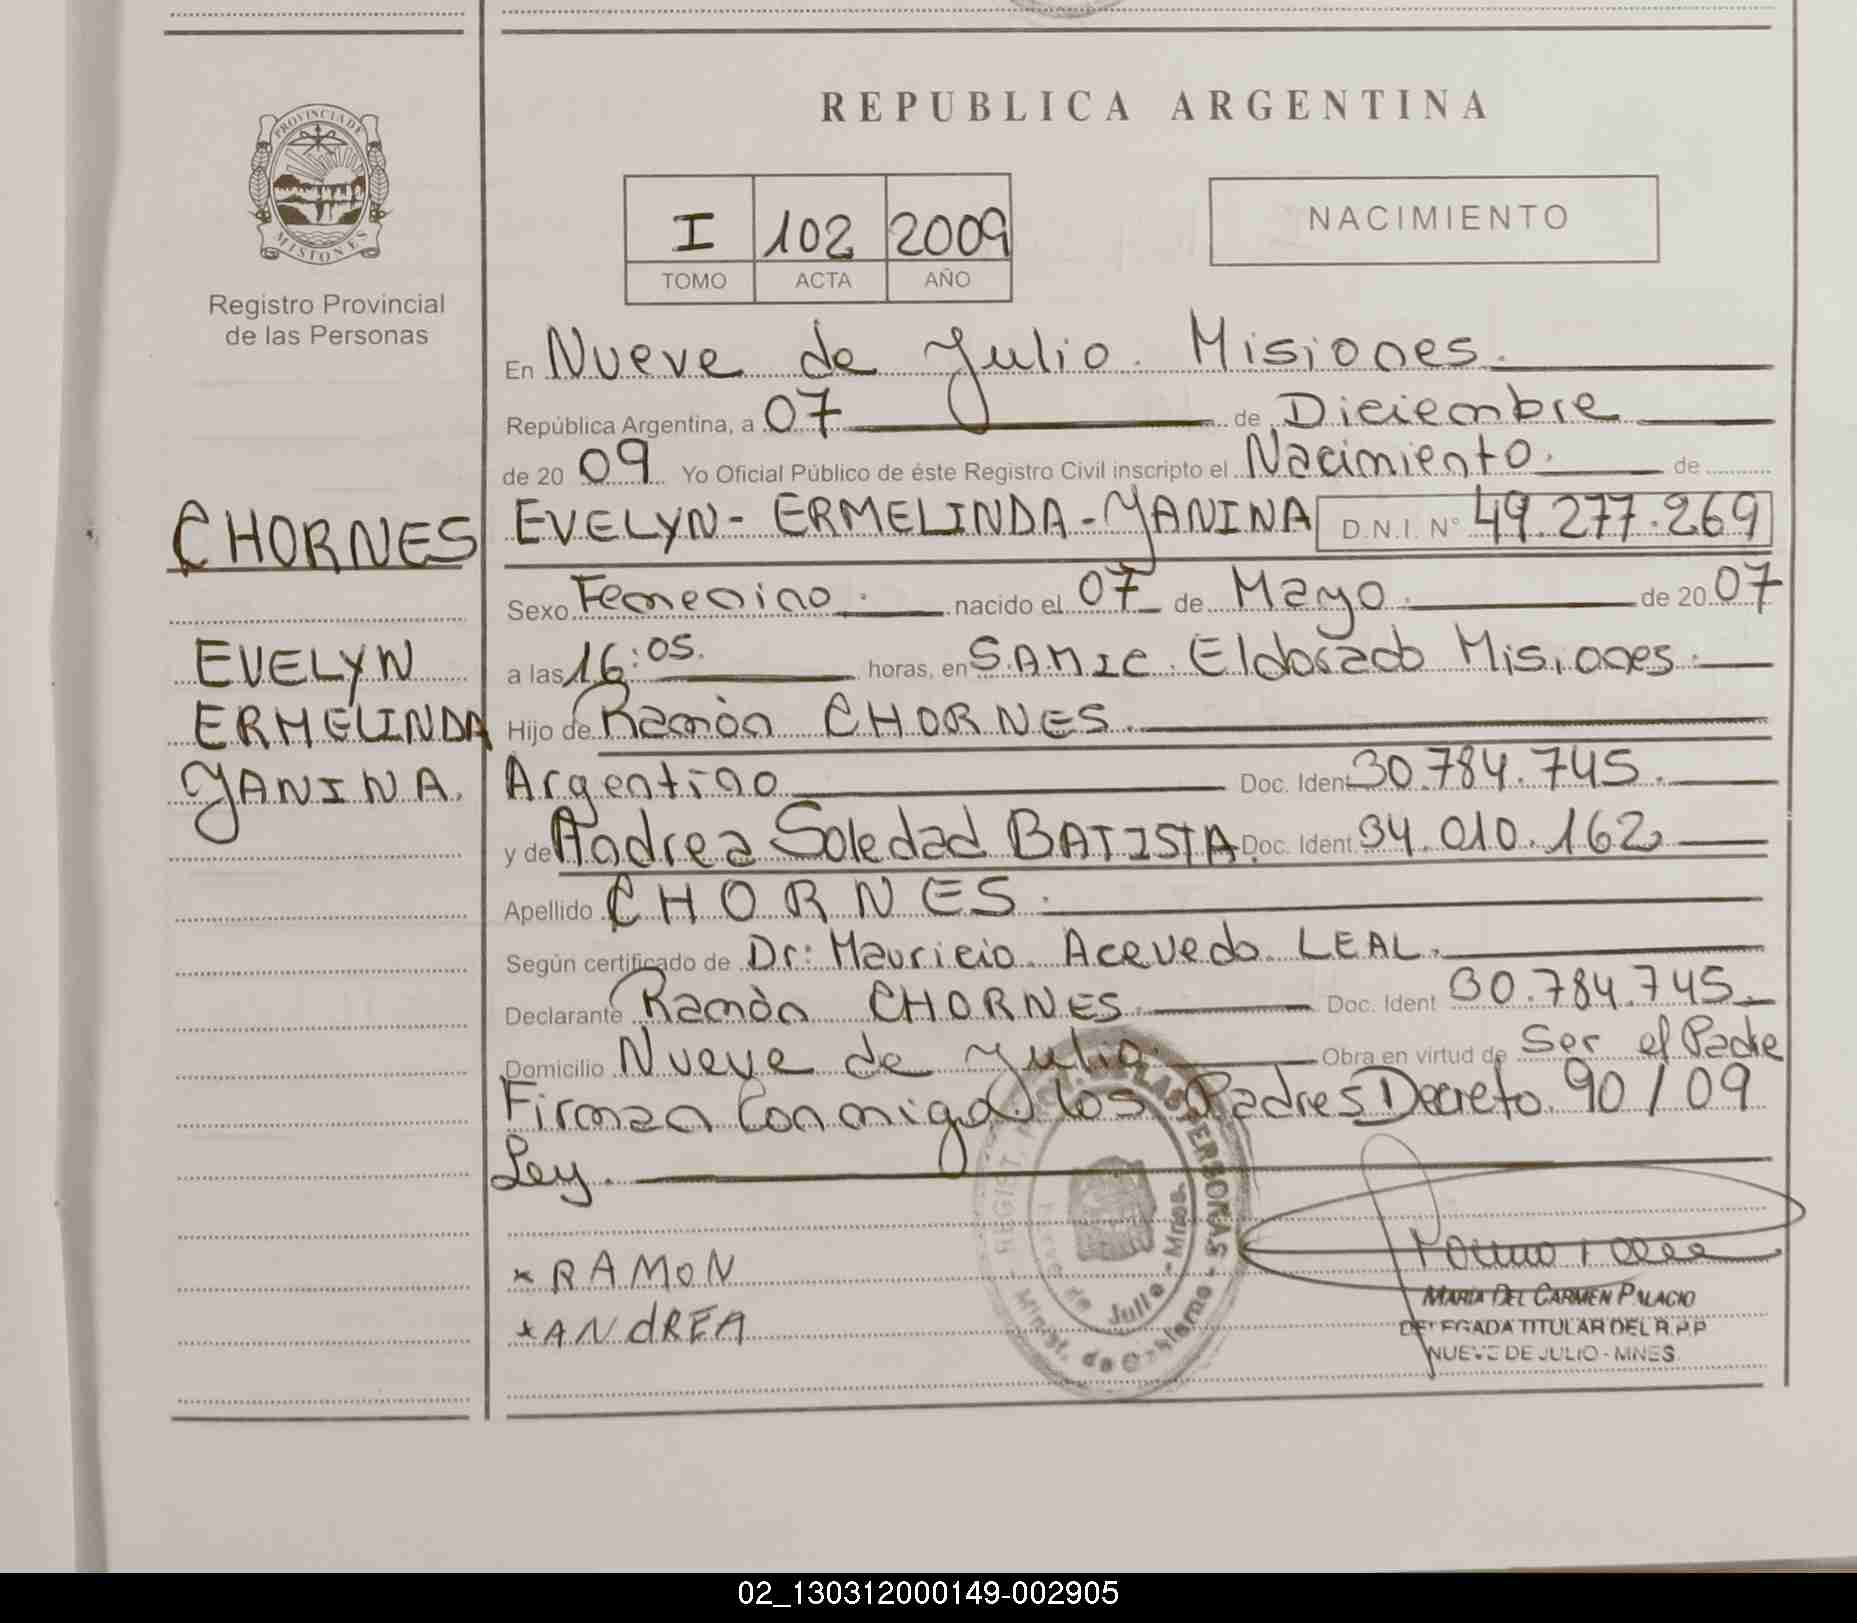 REPUBLICA ARGENTINA
PROVINCIA DE
MISIONES
Registro Provincial
de las Personas
I 102 2009
TOMO ACTA AÑO
NACIMIENTO
En Nueve de Julio. Misiones.
República Argentina, a 07 de Diciembre
de 20 09 Yo Oficial Público de éste Registro Civil inscripto el Nacimiento. de
CHORNES
EVELYN - ERMELINDA - YANINA D.N.I. N° 49.277.269
Sexo Femenino. nacido el 07 de Mayo. de 20 07
EVELYN
ERMELINDA
YANINA.
a las 16:05. horas, en S.A.M.I.C. Eldorado Misiones.
Hijo de Ramòn CHORNES.
Argentino Doc. Ident 30.784.745.
y de Andrea Soledad BATISTA. Doc. Ident. 34.010.162
Apellido CHORNES.
Según certificado de Dr: Mauricio Acevedo LEAL.
Declarante Ramòn CHORNES. Doc. Ident 30.784.745.
Domicilio Nueve de Julio. Obra en virtud de Ser el Padre
Firman Conmigo los Padres Decreto 90/09
Ley.
REGIST. PROV. DE LAS PERSONAS
Nueve de Julio - Mnes.
Minist. de Gobierno
* RAMON
* ANdREA
MARIA DEL CARMEN PALACIO
DELEGADA TITULAR DEL R.P.P
NUEVE DE JULIO - MNES
02_130312000149-002905